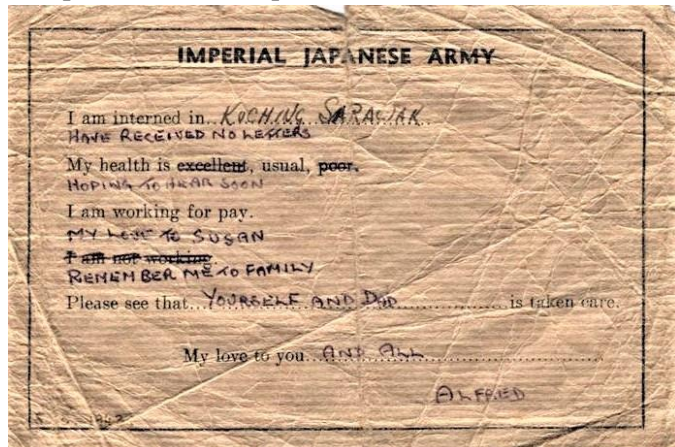 IMPERIAL JAPANESE ARMY
I am interned in KUCHING SARAWAK
HAVE RECEIVED NO LETTERS
My health is excellent, usual, poor.
HOPING TO HEAR SOON
I am working for pay.
MY LOVE TO SUSAN
I am not working.
REMEMBER ME TO FAMILY
Please see that YOURSELF AND DAD is taken care.
My love to you AND ALL
ALFRED